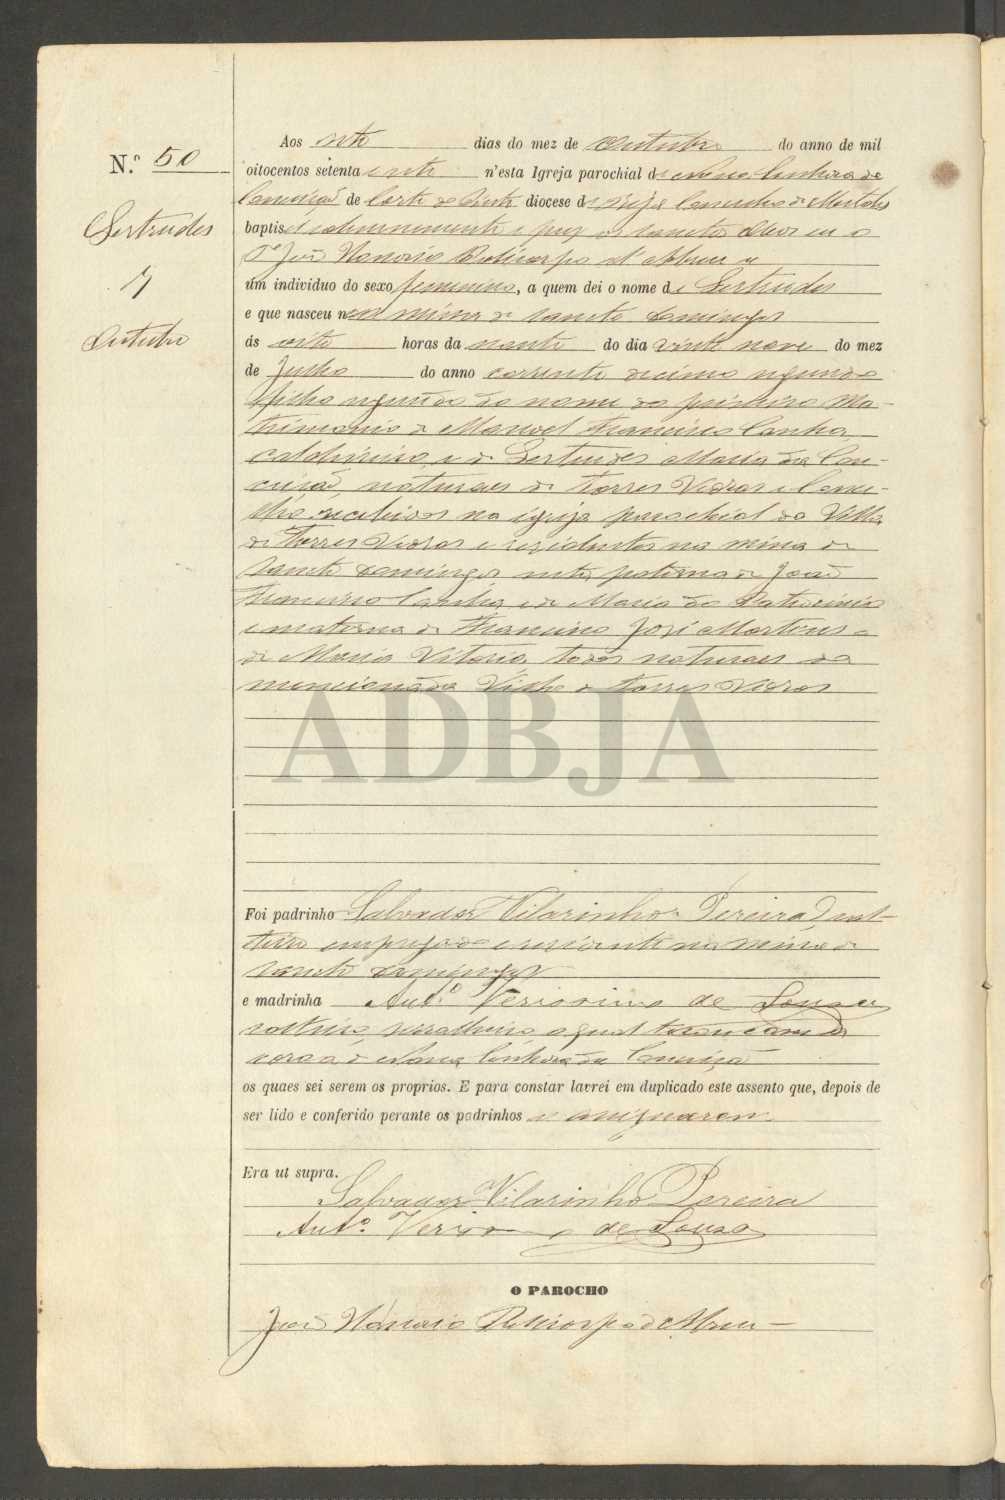 N.º 50
Gertrudes
7
Outubro
Aos sete dias do mez de Outubro do anno de mil
oitocentos setenta e sete n'esta Igreja parochial de Nossa Senhora da
Conceição de Corte do Pinto diocese de Beja Concelho de Mertola
baptisei solemnemente e puz os Sanctos Oleos eu o
P.e João Nonorio Policarpo d'Abreu a
um individuo do sexo femenino, a quem dei o nome de Gertrudes
e que nasceu na mina de Sancto Domingos
ás oito horas da noute do dia vinte nove do mez
de Julho do anno corrente decimo segundo
filha segunda do nome do primeiro Ma-
trimonio de Manoel Francisco Canha,
caldeireiro, e de Gertrudes Maria da Con-
ceição, naturaes de Torres Vedras
recebidos na egreja parochial da Villa
de Torres Vedras e residentes na mina de
Sancto Domingos neta paterna de João
Francisco Canha e de Maria do Patrocinio
e materna de Francisco José Martins e
de Maria Vitoria, todos naturaes da
mencionada Villa de Torres Vedras
ADBJA
Foi padrinho Salvador Vilarinho Pereira, sol-
teiro empregado e residente na mina de
Sancto Domingos
e madrinha Ant.º Verissimo de Souza
solteiro, serralheiro o qual tocou com a
coroa de Nossa Senhora da Conceição
os quaes sei serem os proprios. E para constar lavrei em duplicado este assento que, depois de
ser lido e conferido perante os padrinhos e assignaram.
Era ut supra.
Salvador Vilarinho Pereira
Ant.º Verissimo de Souza
O PAROCHO
João Nonorio Policarpo d'Abreu